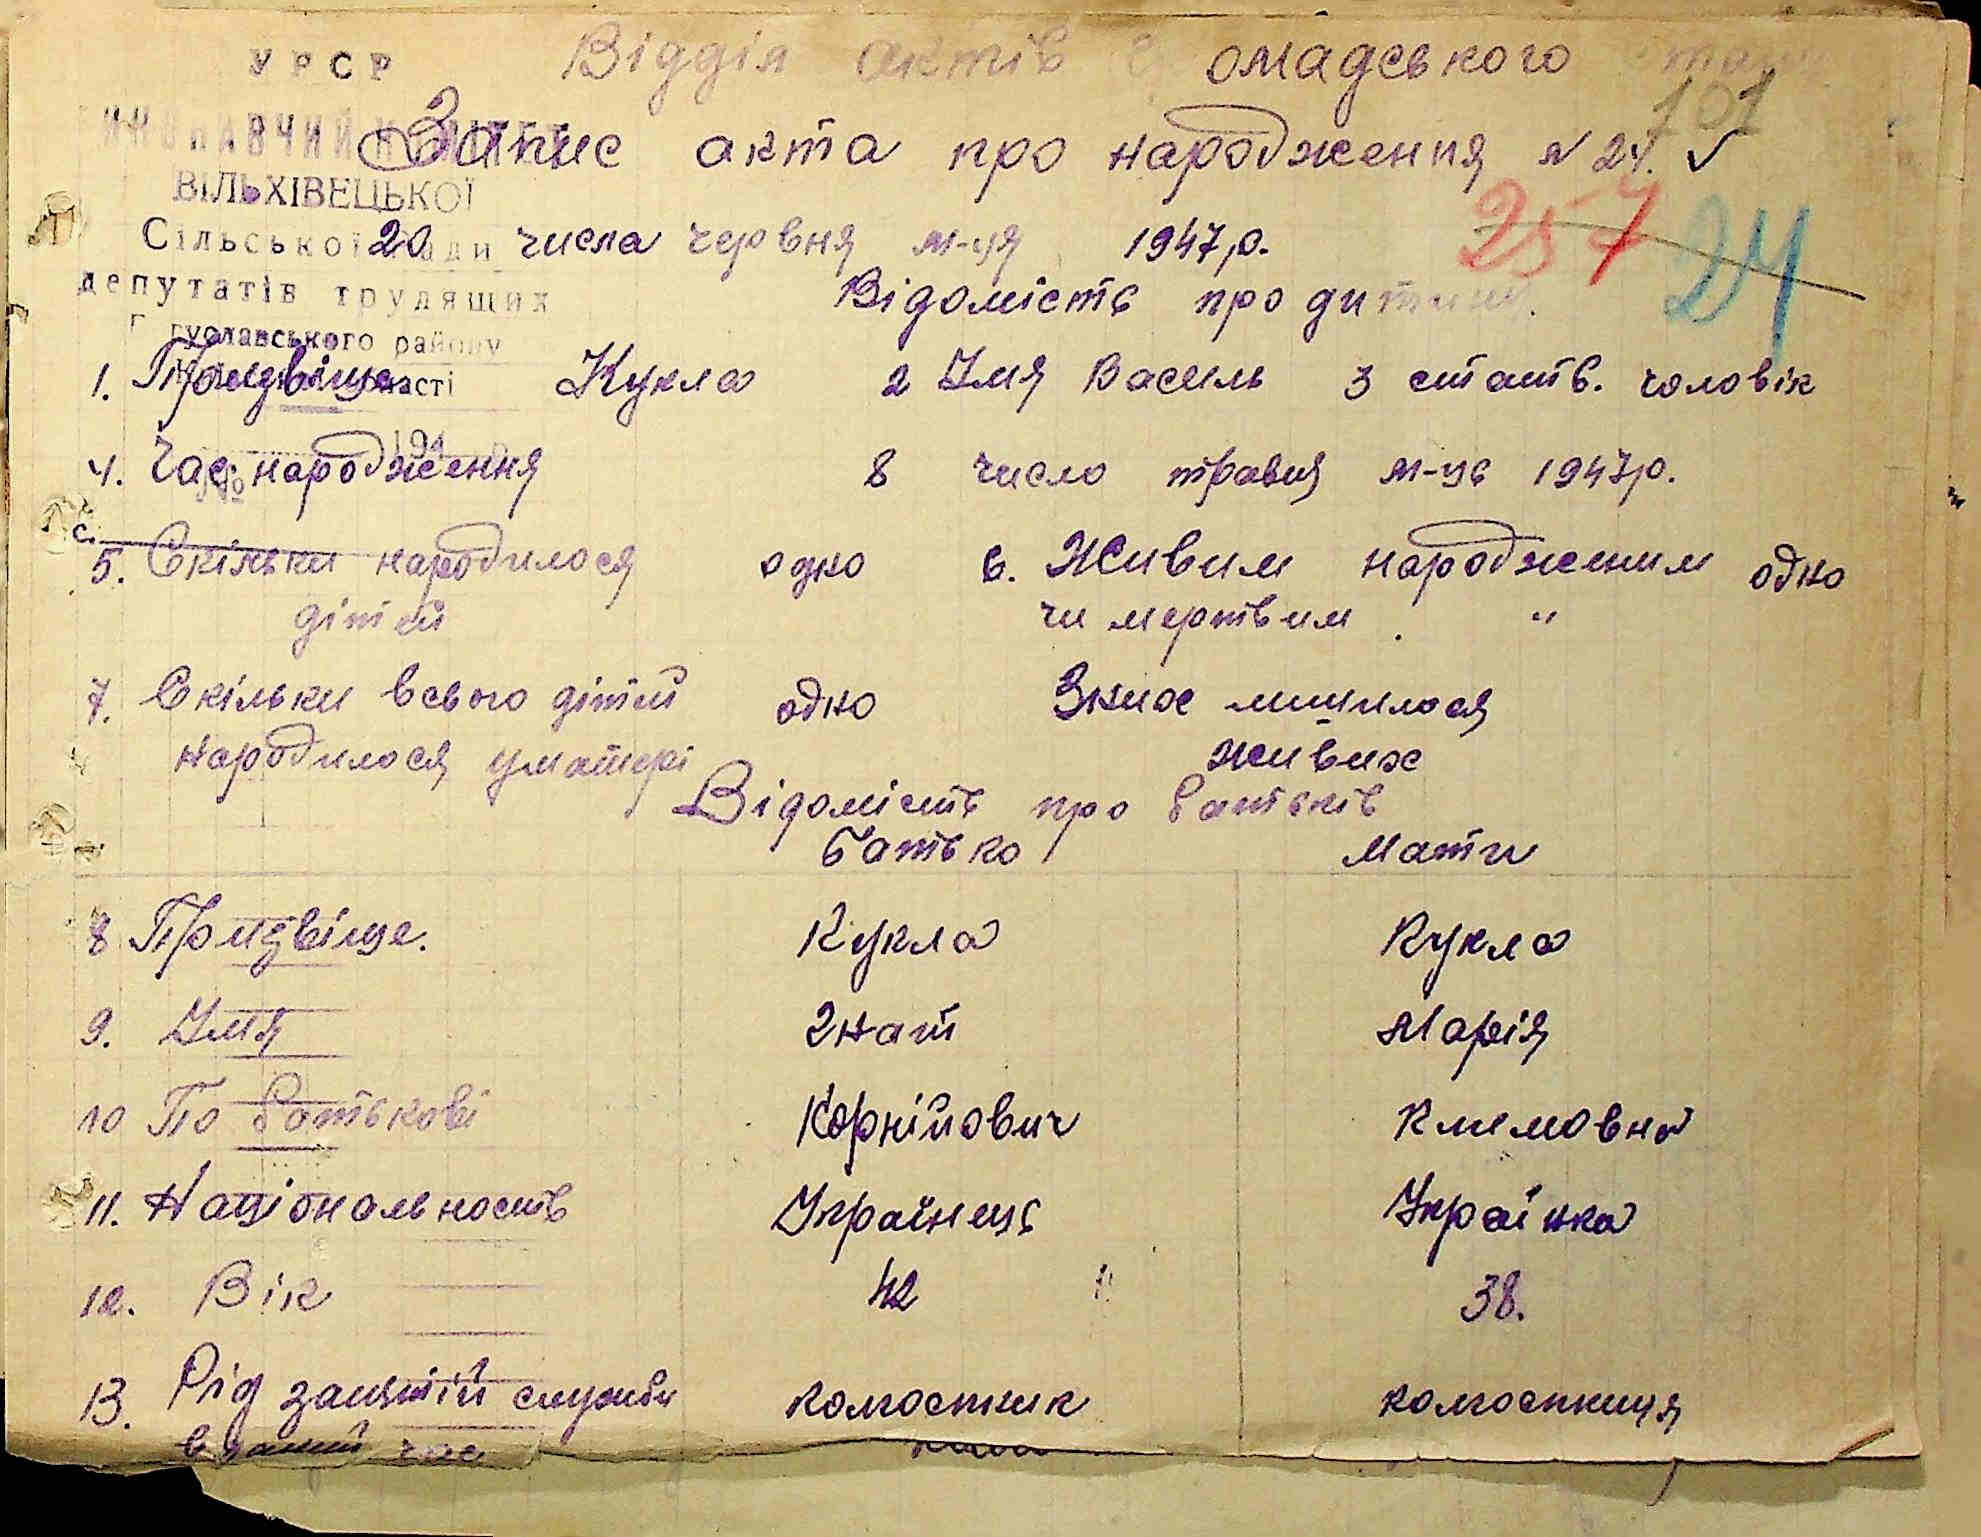 УРСР
Відділ актів омадського
101
ВИКОНАВЧИЙ КОМІТЕТ
Запис акта про народження № 24.
ВІЛЬХІВЕЦЬКОЇ
257 24
Сільської Ради
20 числа червня м-ця 1947 р.
депутатів трудящих
Відомість про дитину.
гуславського району
1. Призвіще Кукла 2 Імя Василь 3 стать. чоловік
області
194
4. Час народження 8 число травня м-ць 1947р.
№
5. Скільки народилося одно 6. Живим народженим одно
дітей чи мертвим "
7. Скільки всього дітей одно Зних лишилося
народилося уматері живих
Відомість про батьків
Батько Мати
8 Призвіще. Кукла Кукла
9. Імя Гнат Марія
10 По батькові Корнійович Климовна
11. Національность Українець Українка
12. Вік 42 38.
13. Рід занятій служби колгоспник колгоспниця
в даний час